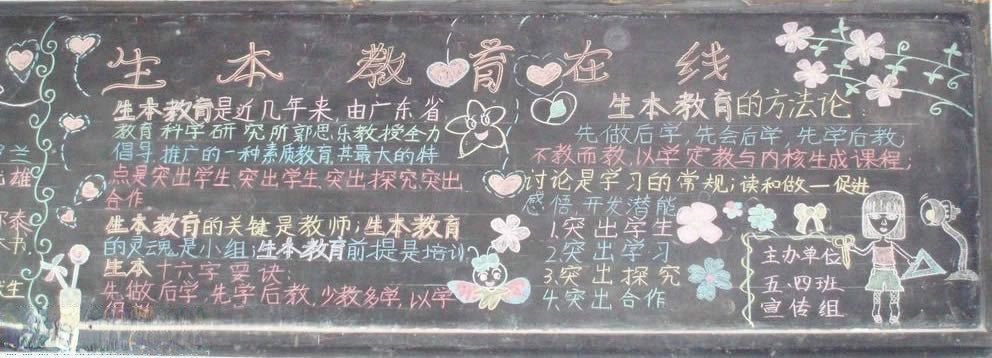 生本教育在线
生本教育是近几年来,由广东省
教育科学研究所郭思乐教授全力
倡导,推广的一种素质教育,其最大的特
点是突出学生,突出学生,突出探究,突出
合作
生本教育的关键是教师;生本教育
的灵魂是小组;生本教育前提是培训;
生本十六字要诀:
先做后学,先学后教,少教多学,以学
生本教育的方法论:
先做后学,先会后学,先学后教,
不教而教,以学定教与内核生成课程;
讨论是学习的常规;读和做—促进
感悟,开发潜能
1.突出学生
2.突出学习
3.突出探究
4.突出合作
主办单位
五.四班
宣传组